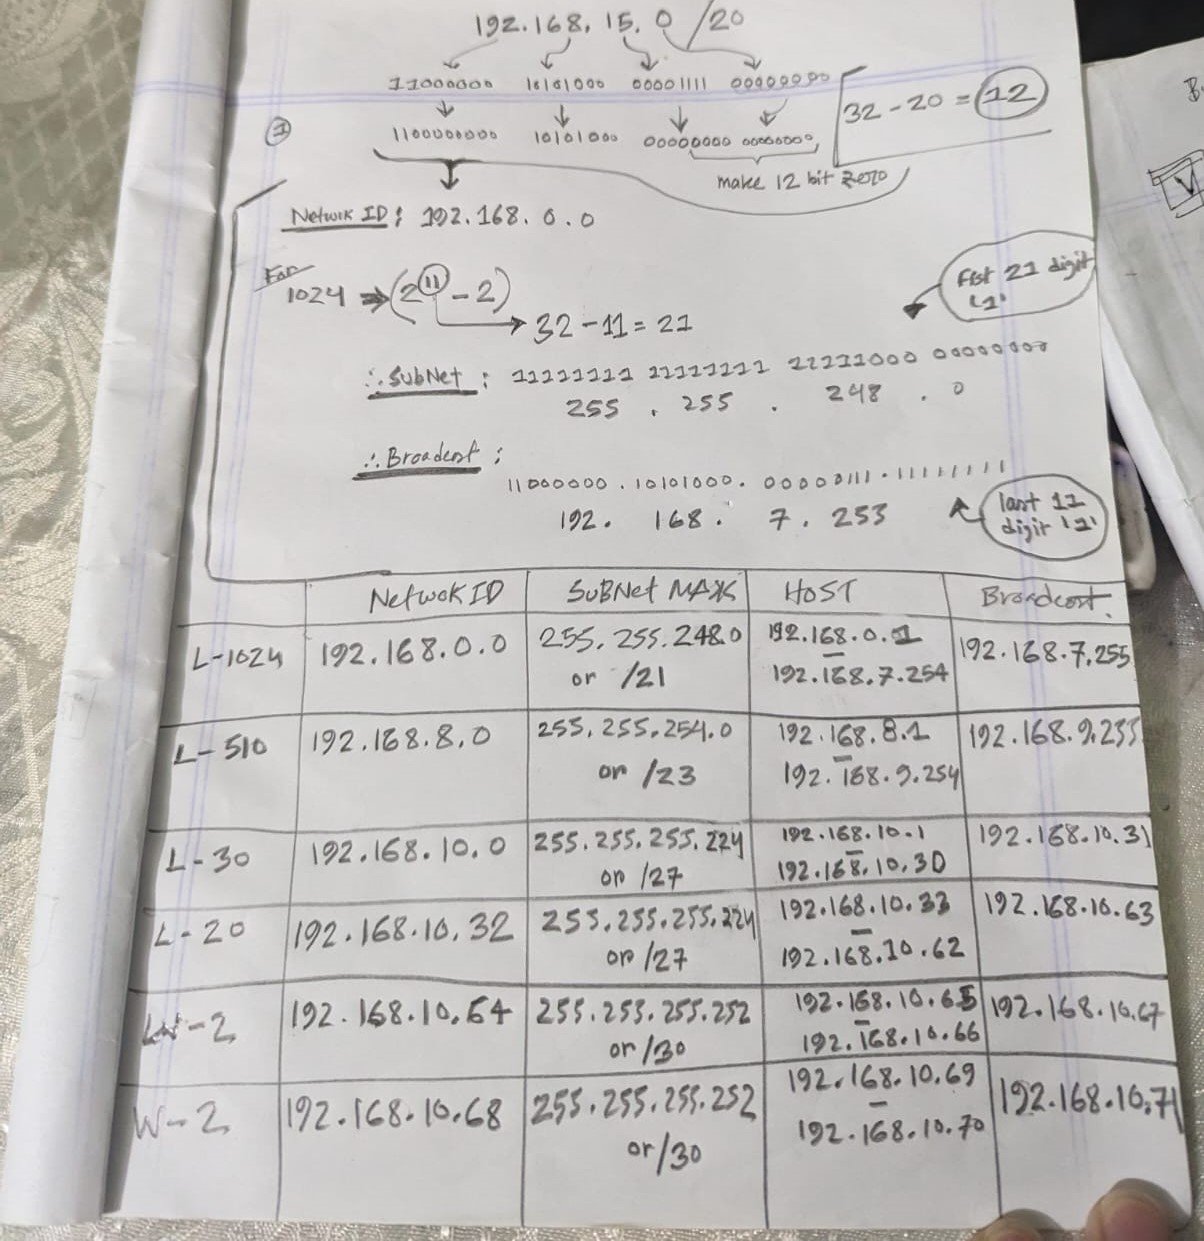 192.168.15.0/20
11000000 10101000 00001111 00000000
32-20 = 12
1
1100000000 10101000 00000000 00000000
make 12 bit zero
Netwrk ID: 192.168.0.0
For
1024 ⇒ (2^11 - 2)
32-11 = 21
first 21 digit
'1'
∴ SubNet : 11111111 11111111 11111000 00000000
255 . 255 . 248 . 0
∴ Broadcast :
11000000.10101000.00000111.11111111
192. 168. 7. 255
last 11
digit '1'
Netwok ID SUBNet MASK HOST Broadcast.
L-1024 192.168.0.0 255.255.248.0 192.168.0.1 192.168.7.255
or /21 - 192.168.7.254
L-510 192.168.8.0 255.255.254.0 192.168.8.1 192.168.9.255
or /23 - 192.168.9.254
L-30 192.168.10.0 255.255.255.224 192.168.10.1 192.168.10.31
or /27 - 192.168.10.30
L-20 192.168.10.32 255.255.255.224 192.168.10.33 192.168.10.63
or /27 - 192.168.10.62
W-2 192.168.10.64 255.255.255.252 192.168.10.65 192.168.10.67
or /30 - 192.168.10.66
W-2 192.168.10.68 255.255.255.252 192.168.10.69 192.168.10.71
or /30 - 192.168.10.70